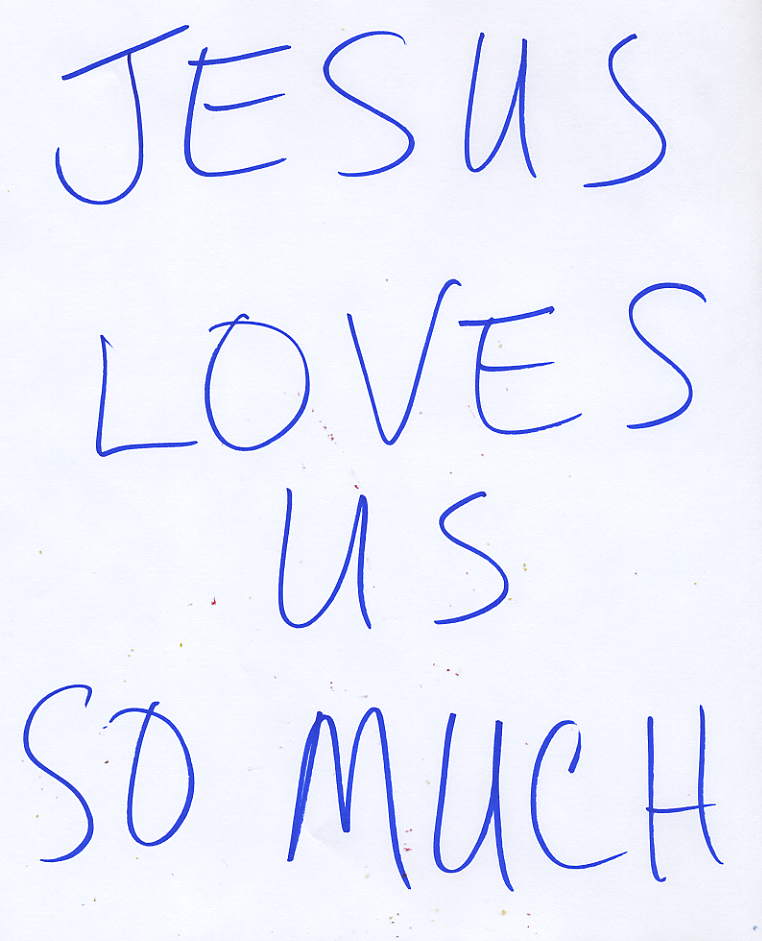 JESUS
LOVES
US
SO MUCH